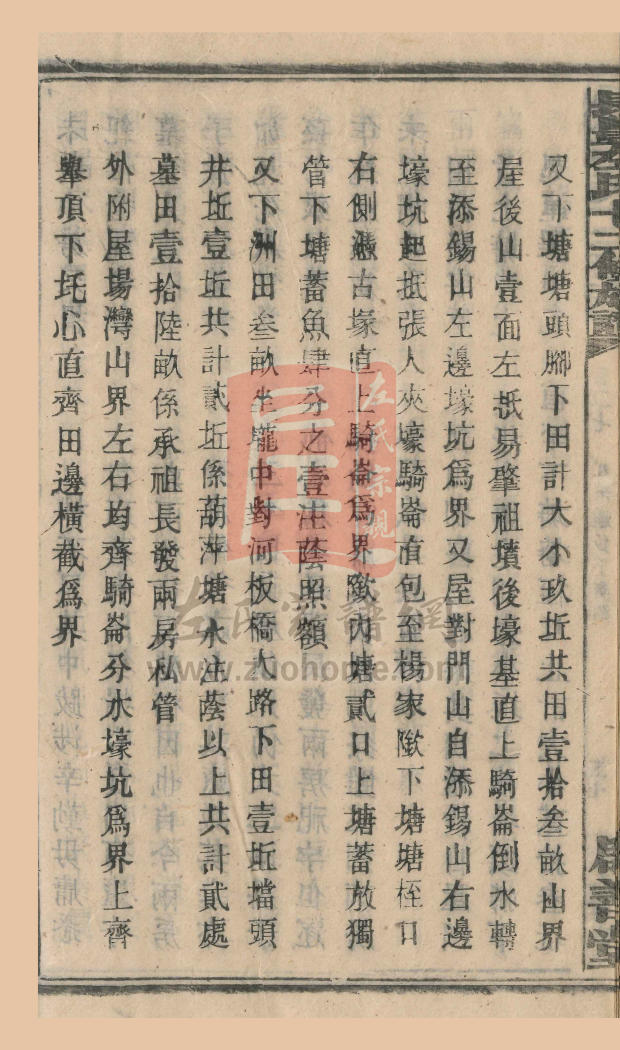 又下塘塘頭腳下田計大小玖坵共田壹拾叁畝山界
屋後山壹面左抵易肇祖墳後壕基直上騎崙倒水轉
至添錫山左邊壕坑爲界又屋對門山自添錫山右邊
壕坑起抵張人夾壕騎崙直包至楊家墩下塘塘桎口
右側憑古塚直上騎崙爲界墩內塘貳口上塘蓄放獨
管下塘蓄魚肆分之壹注蔭照額
又下洲田叁畝坐壠中對河板橋大路下田壹坵壋頭
井坵壹坵共計貳坵係葫萍塘水注蔭以上共計貳處
墓田壹拾陸畝係承祖長發兩房私管
外附屋場灣山界左右均齊騎崙分水壕坑爲界上齊
峯頂下圫心直齊田邊橫截爲界
左氏宗親
左氏家譜網
www.zuohome.com